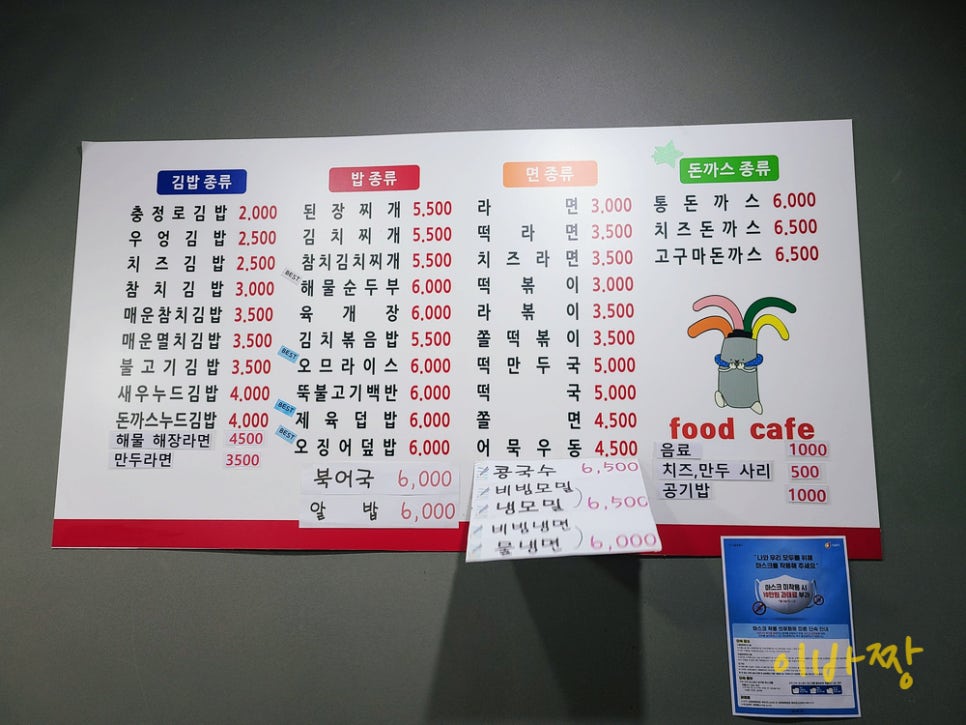 김밥 종류
충정로김밥 2,000
우엉김밥 2,500
치즈김밥 2,500
참치김밥 3,000
매운참치김밥 3,500
매운멸치김밥 3,500
불고기김밥 3,500
새우누드김밥 4,000
돈까스누드김밥 4,000
해물 해장라면 4500
만두라면 3500
밥 종류
된장찌개 5,500
김치찌개 5,500
참치김치찌개 5,500
BEST 해물순두부 6,000
육개장 6,000
김치볶음밥 5,500
BEST 오므라이스 6,000
뚝불고기백반 6,000
BEST 제육덥밥 6,000
BEST 오징어덮밥 6,000
북어국 6,000
알밥 6,000
면 종류
라면 3,000
떡라면 3,500
치즈라면 3,500
떡볶이 3,000
라볶이 3,500
쫄떡볶이 3,500
떡만두국 5,000
떡국 5,000
쫄면 4,500
어묵우동 4,500
콩국수 6,500
비빙모밀
냉모밀 ) 6,500
비빙냉면
물냉면 ) 6,000
돈까스 종류
통돈까스 6,000
치즈돈까스 6,500
고구마돈까스 6,500
food cafe
음료 1000
치즈,만두 사리 500
공기밥 1000
"나와 우리 모두를 위해
마스크를 착용해 주세요"
마스크 미착용 시
10만원 과태료 부과
이바짱